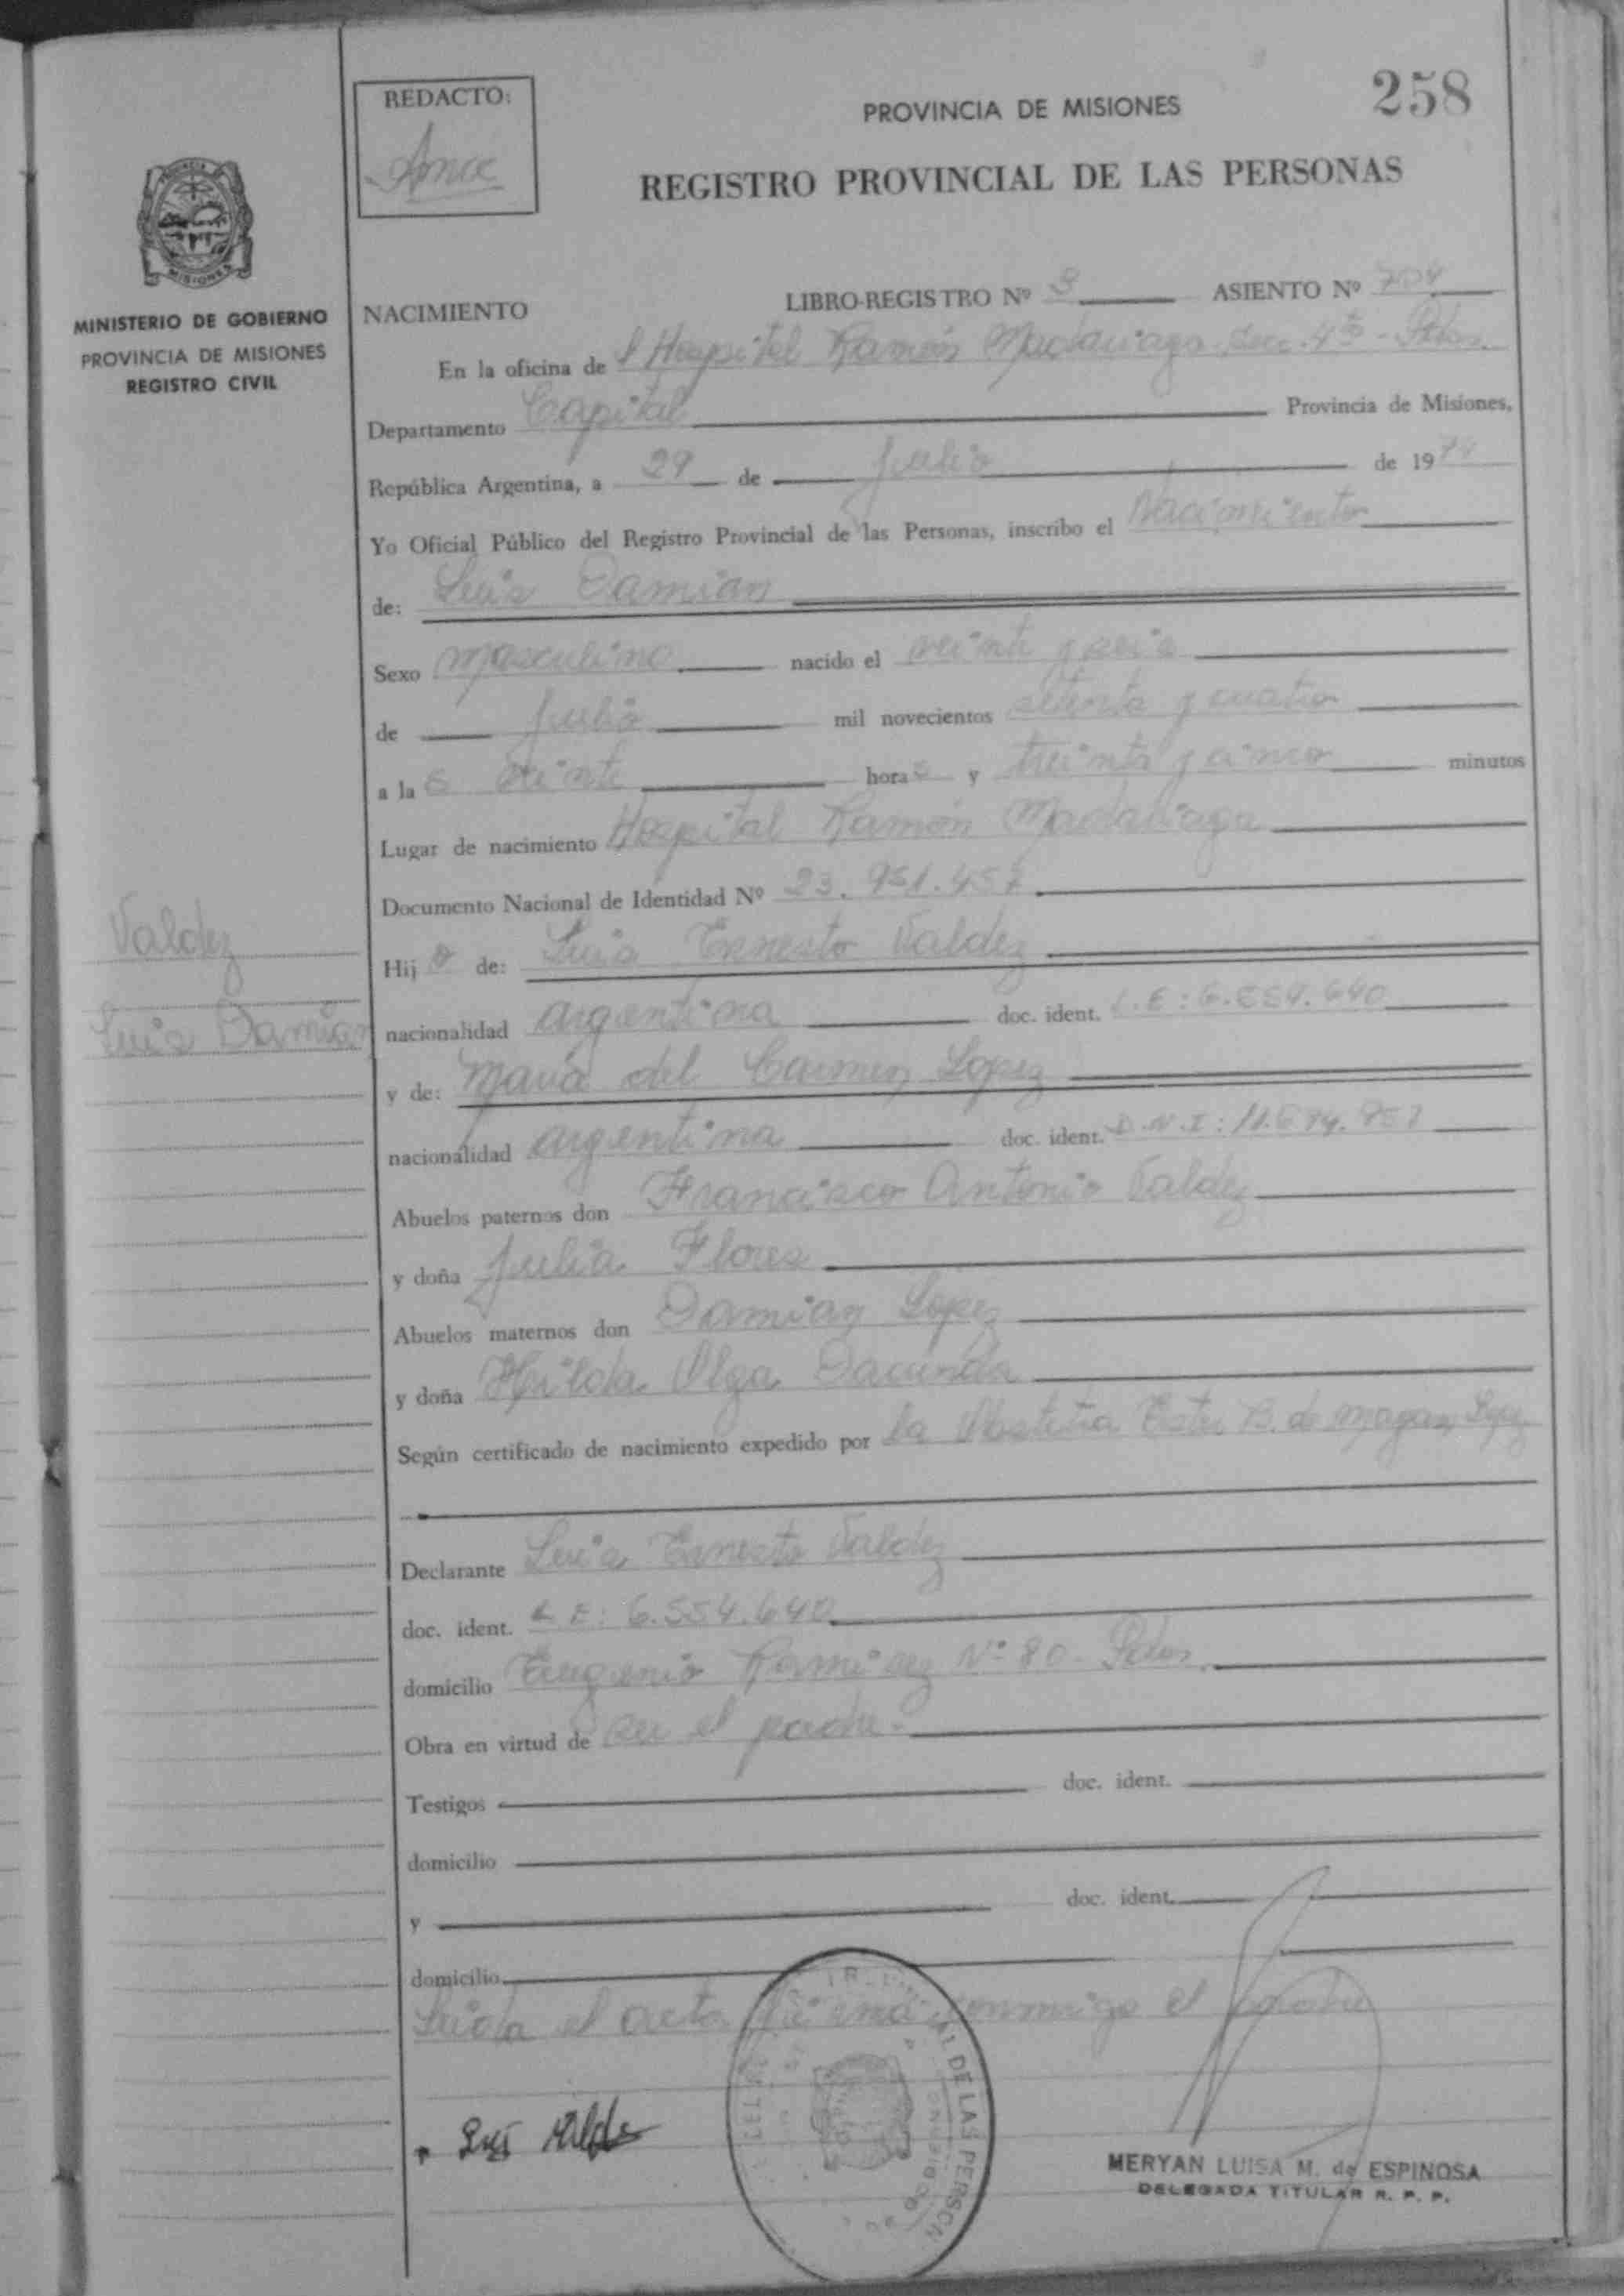 258
REDACTO:
PROVINCIA DE MISIONES
REGISTRO PROVINCIAL DE LAS PERSONAS
MISIONES
MINISTERIO DE GOBIERNO
PROVINCIA DE MISIONES
REGISTRO CIVIL
NACIMIENTO LIBRO-REGISTRO Nº 3 ASIENTO Nº 704
En la oficina de l Hospital Ramón Madariaga Secc. 4ta - Pdas.
Departamento Capital Provincia de Misiones,
República Argentina, a 29 de Julio de 1974
Yo Oficial Público del Registro Provincial de las Personas, inscribo el Nacimiento
de: Luis Damian
Sexo masculino nacido el veinte y seis
de Julio mil novecientos setenta y cuatro
a la s veinte hora s y treinta y cinco minutos
Lugar de nacimiento Hospital Ramón Madariaga
Documento Nacional de Identidad Nº 23.951.457
Valdez
Luis Damian
Hij o de: Luis Ernesto Valdez
nacionalidad argentina doc. ident. L.E: 6.554.640
y de: Maria del Carmen Lopez
nacionalidad argentina doc. ident. D.N.I: 11.674.857
Abuelos paternos don Francisco Antonio Valdez
y doña Julia Flores
Abuelos maternos don Damian Lopez
y doña Hilda Olga Dacunda
Según certificado de nacimiento expedido por la Obstetra Ester B. de
Declarante Luis Ernesto Valdez
doc. ident. L E: 6.554.640
domicilio Eugenio Ramirez Nº 80 - Pdas.
Obra en virtud de ser el padre.-
Testigos doc. ident.
domicilio
y doc. ident.
domicilio
Leida el acta firma conmigo el padre
Luis Valdez
DE LAS PERSON
MERYAN LUISA M. de ESPINOSA
DELEGADA TITULAR R. P. P.